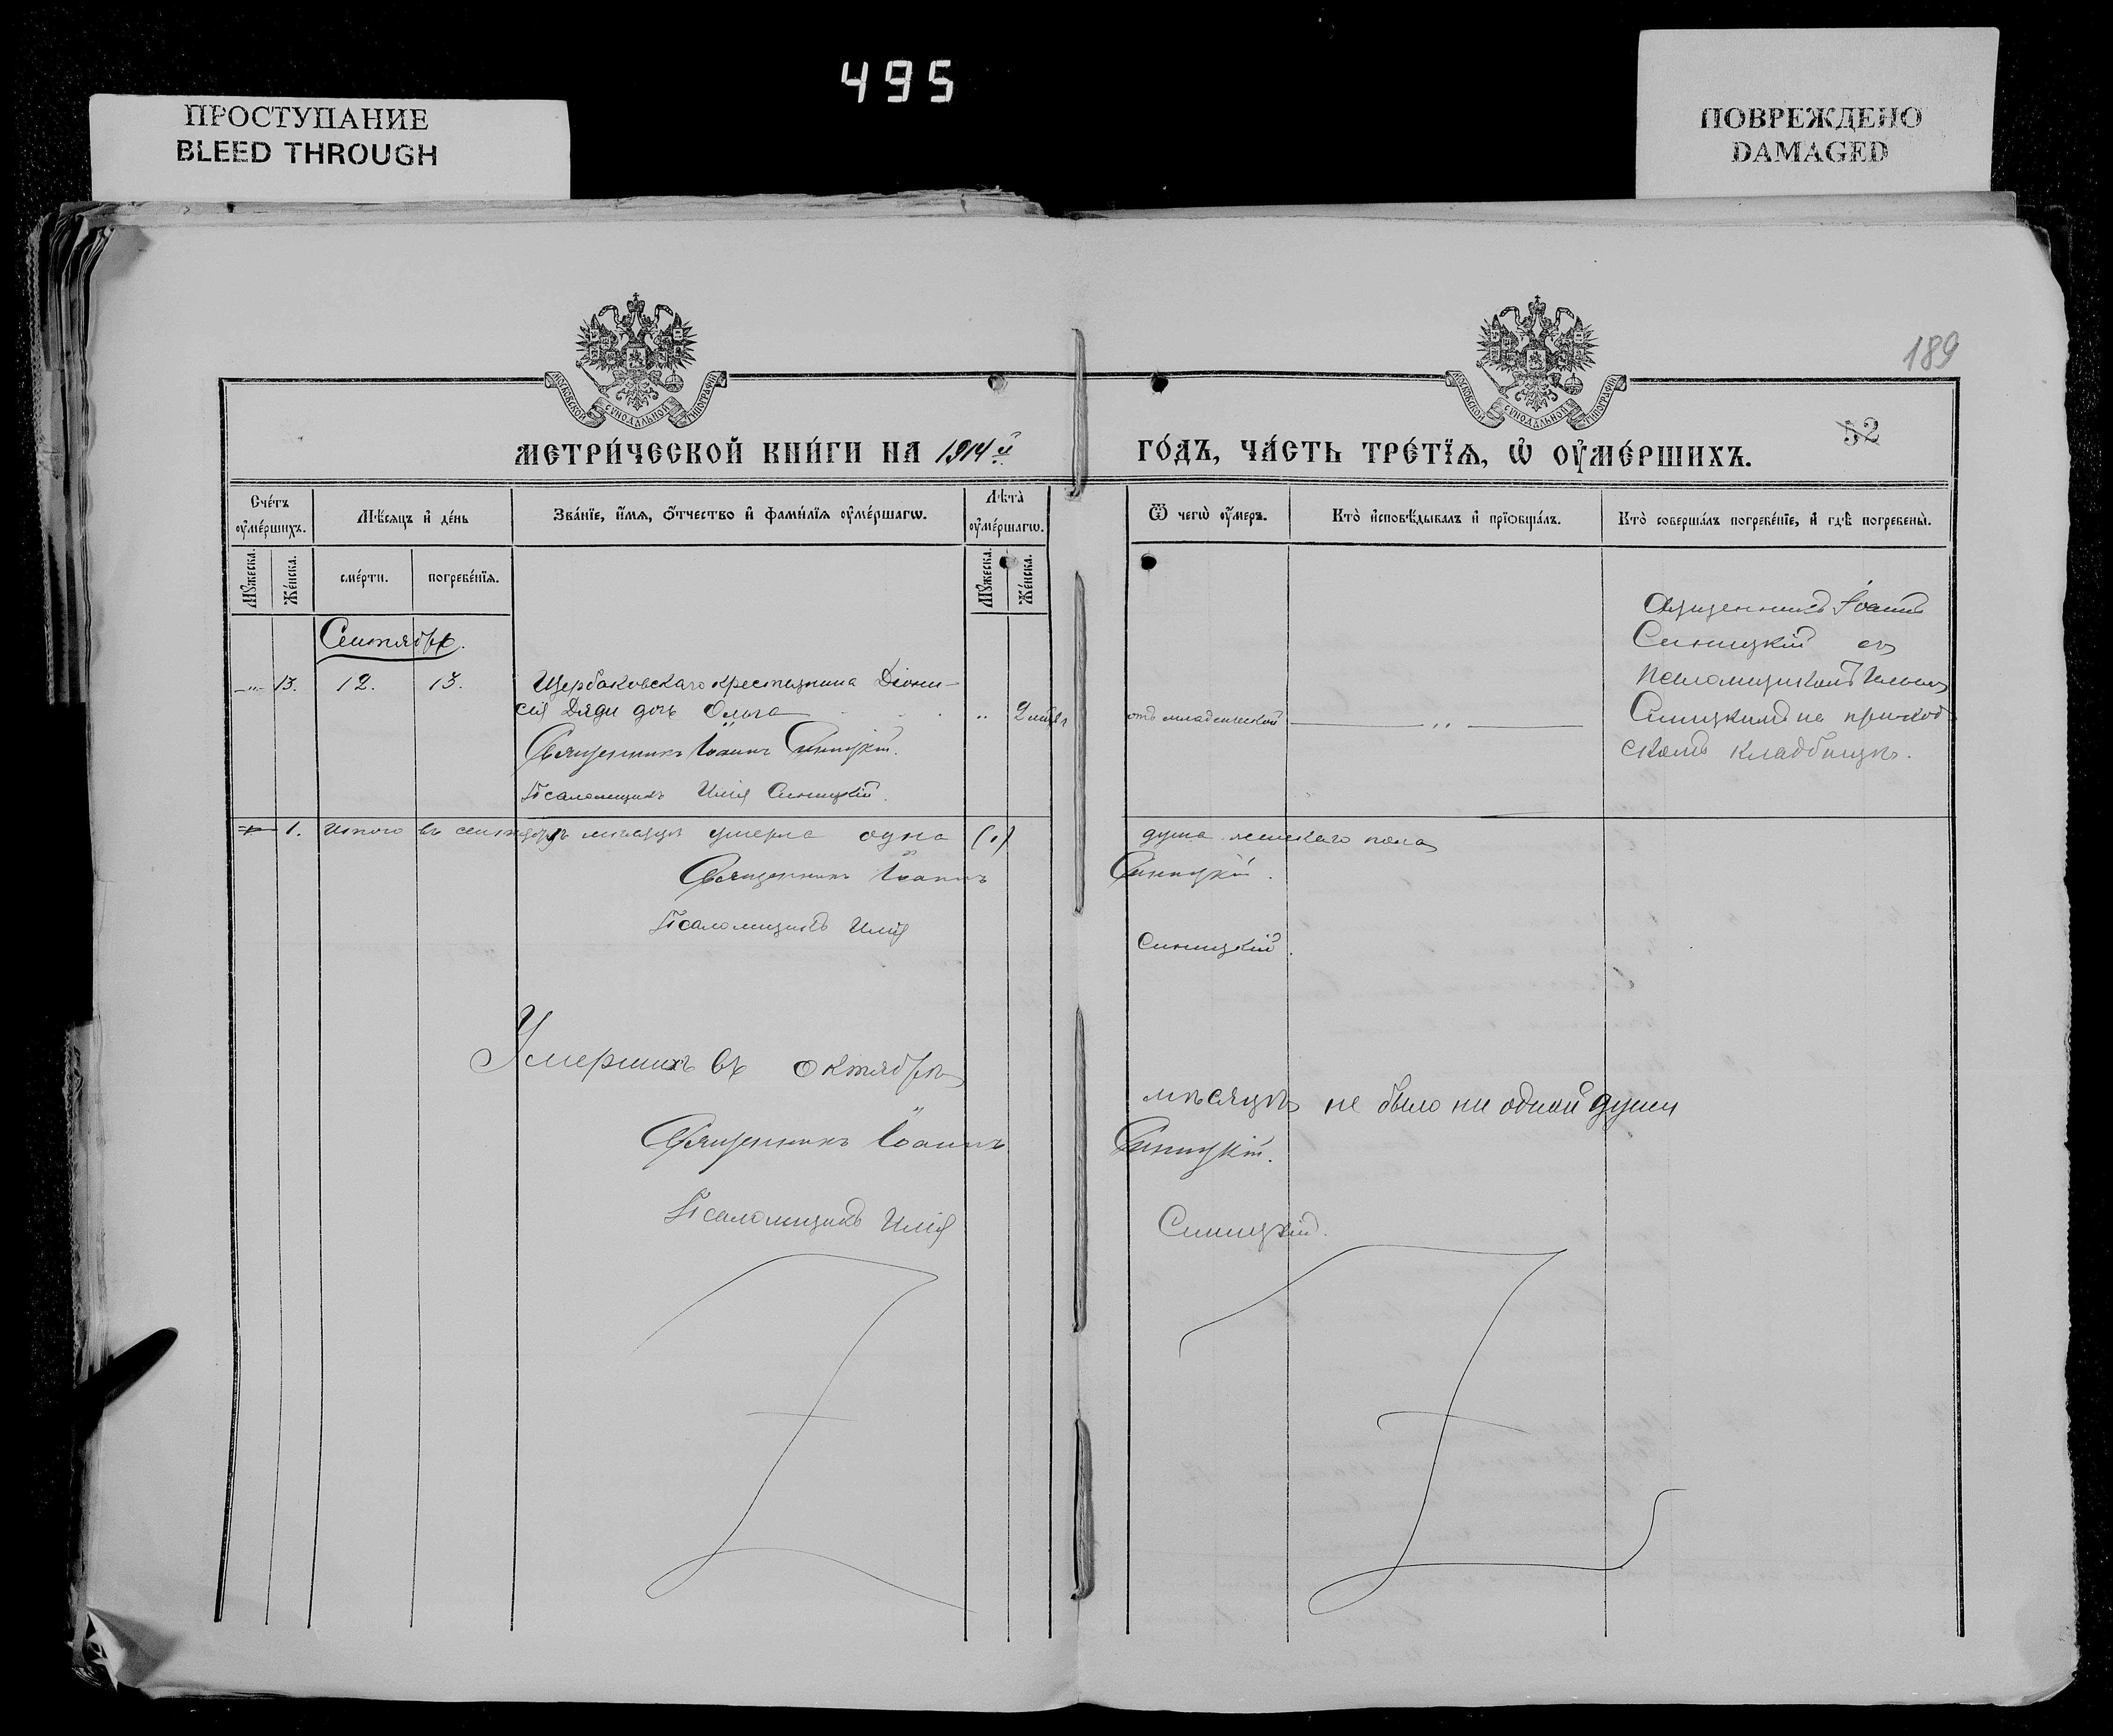 495
ПРОСТУПАНИЕ
BLEED THROUGH
ПОВРЕЖДЕНО
DAMAGED
189
52
МОСКОВСКОЙ СУНОДАЛЬНОЙ ТИПОГРАФІИ
МОСКОВСКОЙ СУНОДАЛЬНОЙ ТИПОГРАФІИ
МЕТРИ́ЧЕСКОЙ КНИ́ГИ НА 1914й
ГО́ДЪ, ЧА́СТЬ ТРЕ́ТЇѦ, Ѡ҆ ОУ҆МЕ́РШИХЪ.
Сче́тъ оу҆ме́ршихъ.
Мꙋ́жеска.
Же́нска.
Мѣ́сѧцъ и҆ де́нь
сме́рти.
погребе́нїѧ.
Зва́нїе, и҆́мѧ, ѻ҆́тчество и҆ фами́лїѧ оу҆ме́ршагѡ.
Лѣта̀ оу҆ме́ршагѡ.
Мꙋ́жеска.
Же́нска.
Ѿ чегѡ̀ оу҆́меръ.
Кто̀ и҆сповѣ́дывалъ и҆ прїѡбща́лъ.
Кто̀ соверша́лъ погребе́нїе, и҆ гдѣ̀ погребены̀.
Сентября.
—"— 13. 12. 13. Щербаковскаго крестьянина Діони-
сія Дяди дочь Ольга " 2 мѣс. отъ младенческой — " —
Священникъ Іоаннъ Синицкій.
Псаломщикъ Илія Синицкій.
Священникъ Іоаннъ
Синицкій съ
псаломщикомъ Ильею
Синицкимъ на приход-
скомъ кладбищѣ.
1. Итого въ сентябрѣ мѣсяцѣ умерла одна (1) душа женскаго пола
Священникъ Іоаннъ Синицкій.
Псаломщикъ Илія Синицкій.
Умершихъ въ октябрѣ мѣсяцѣ не было ни одной души
Священникъ Іоаннъ Синицкій.
Псаломщикъ Илія Синицкій.